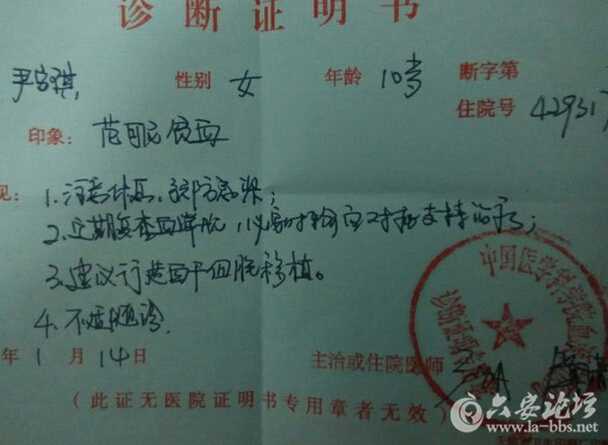 诊断证明书
性别 女 年龄 10岁 断字第
住院号 429317
印象: 范可尼贫血
见: 1. 注意休息、预防感染;
2. 定期复查血常规,必要时给予对症支持治疗;
3. 建议行造血干细胞移植。
4. 不适随诊.
年 1 月 14 日 主治或住院医师
(此证无医院证明书专用章者无效)
中国医学科学院血
六安论坛
www.la-bbs.net